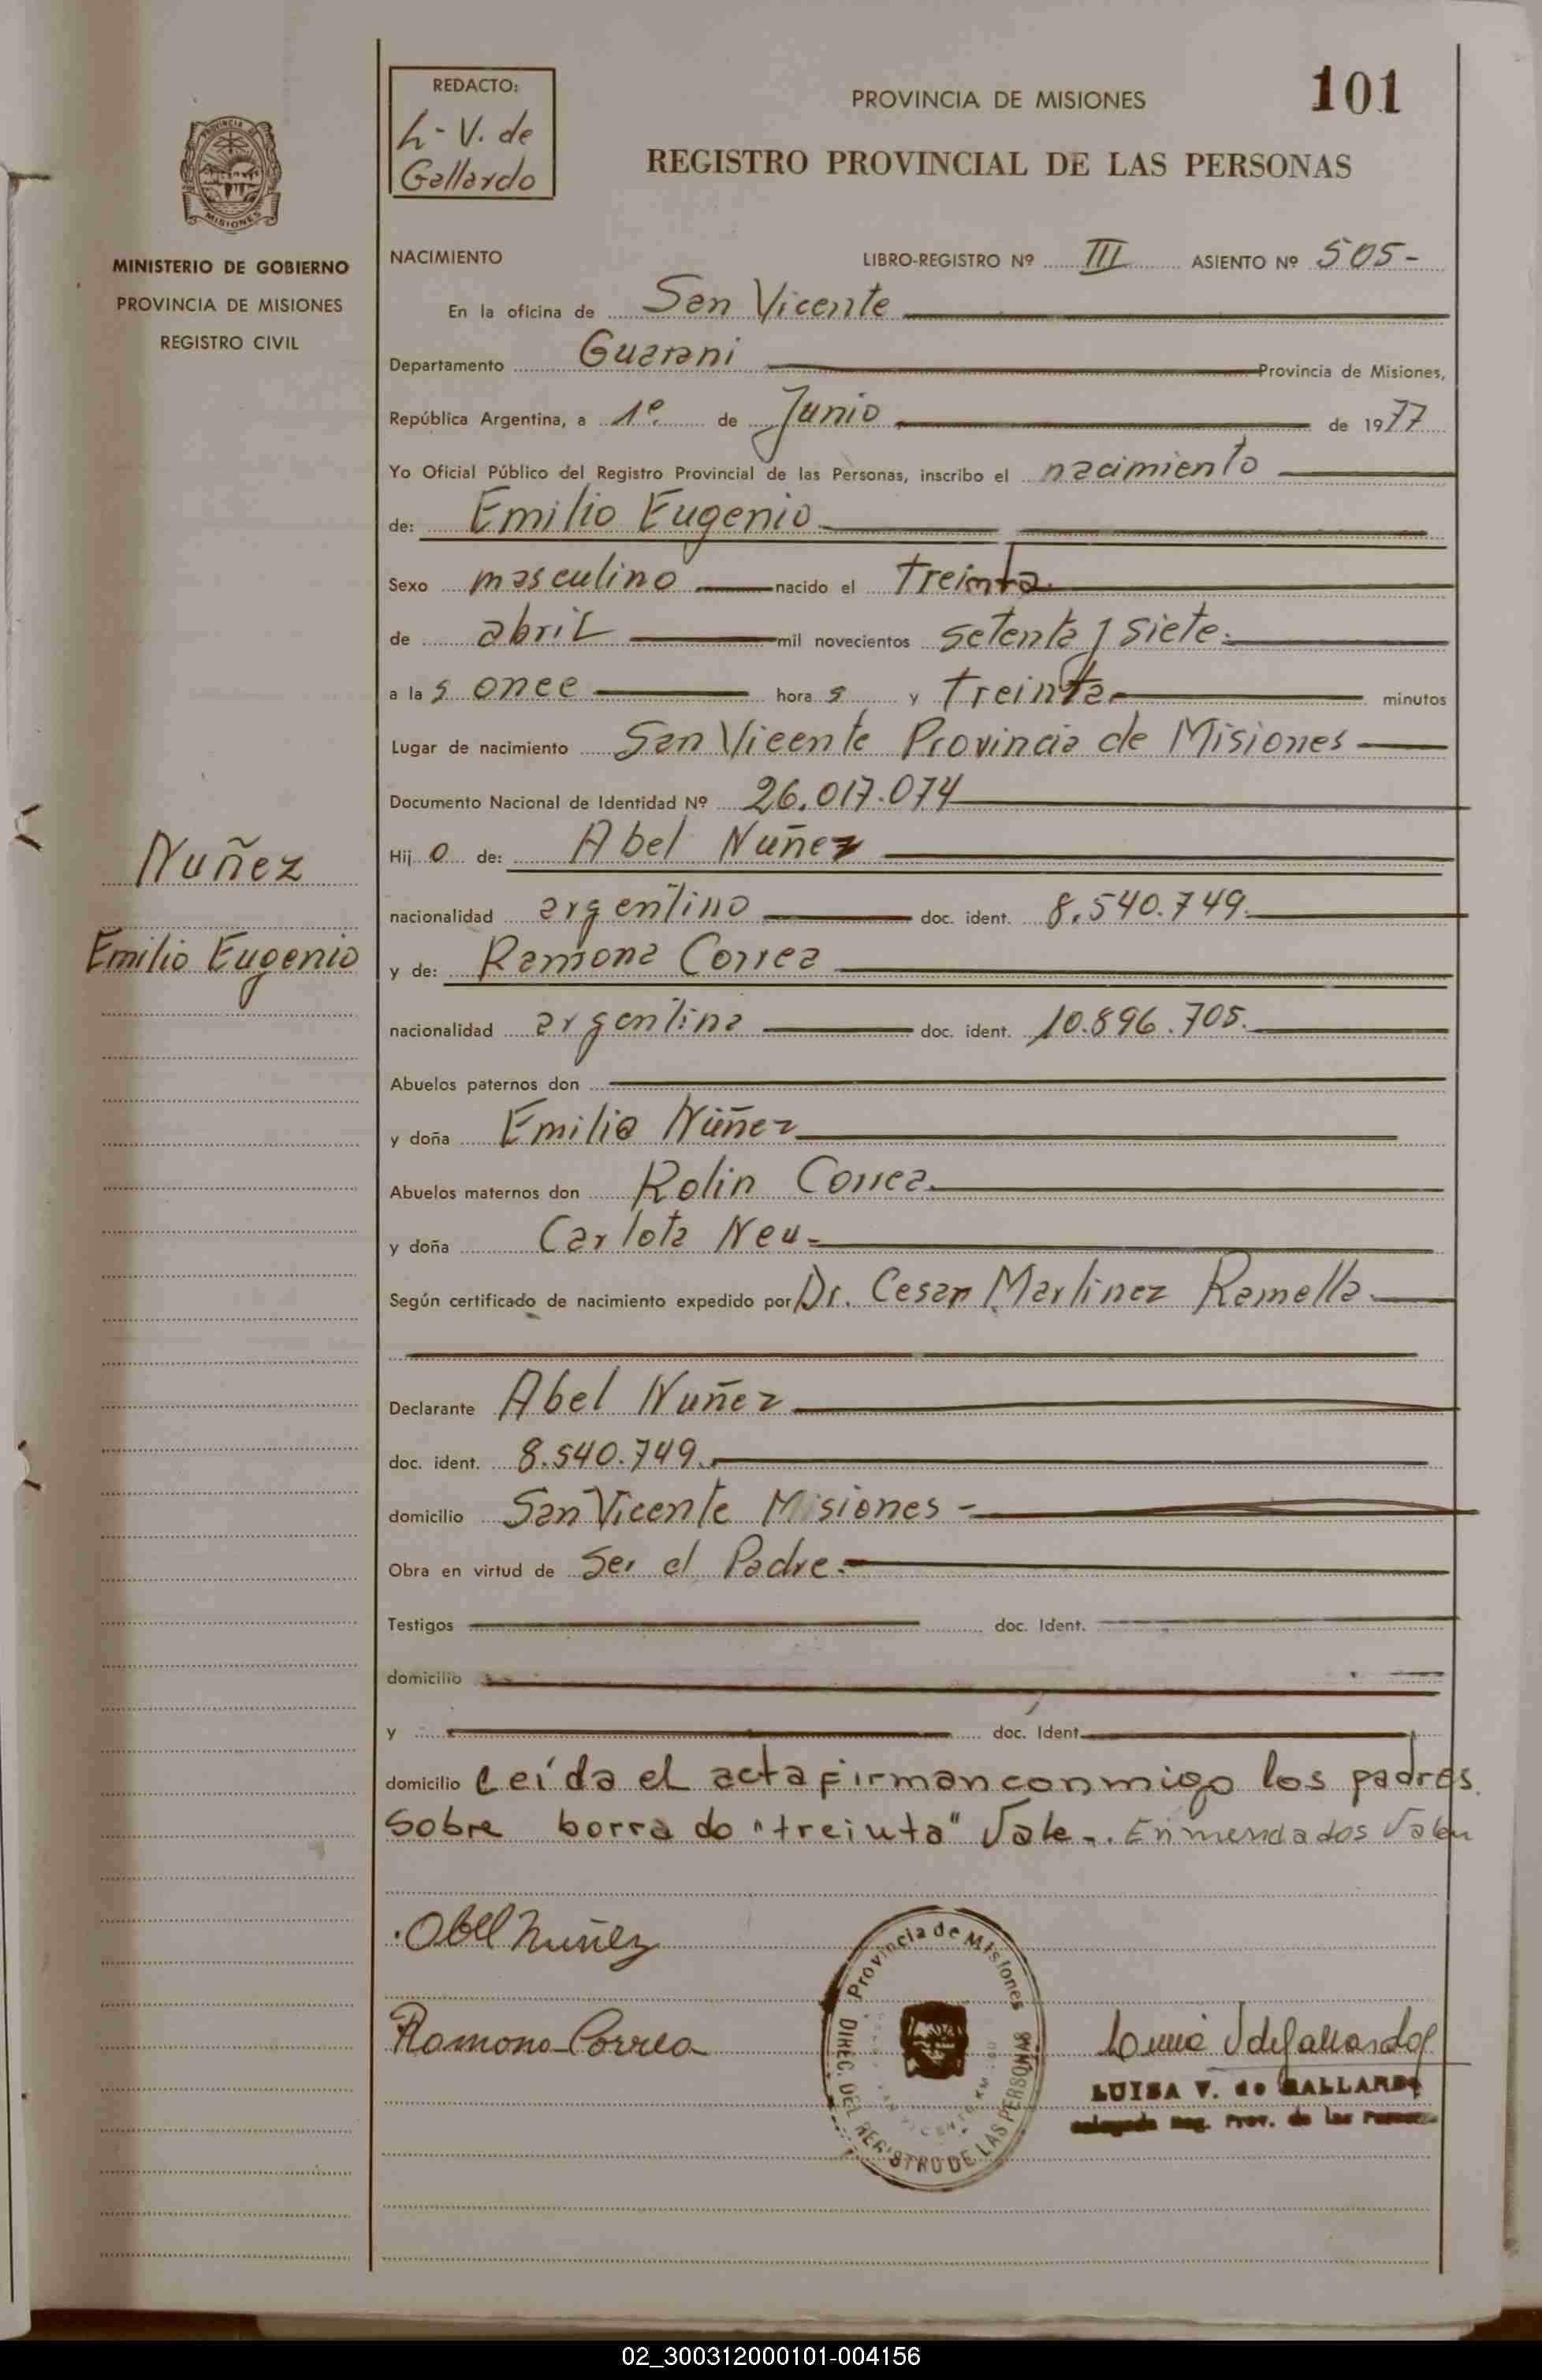 REDACTO:
L-V. de
Gallardo
PROVINCIA DE MISIONES
101
REGISTRO PROVINCIAL DE LAS PERSONAS
PROVINCIA DE
MISIONES
MINISTERIO DE GOBIERNO
PROVINCIA DE MISIONES
REGISTRO CIVIL
NACIMIENTO LIBRO-REGISTRO Nº III ASIENTO Nº 505-
En la oficina de San Vicente
Departamento Guarani Provincia de Misiones,
República Argentina, a 1º. de Junio de 1977
Yo Oficial Público del Registro Provincial de las Personas, inscribo el nacimiento
de: Emilio Eugenio
Sexo masculino nacido el treinta
de abril mil novecientos setenta y siete.
a las once horas y treinta minutos
Lugar de nacimiento San Vicente Provincia de Misiones
Documento Nacional de Identidad Nº 26.017.074
Hijo de: Abel Nuñez
nacionalidad argentino doc. ident. 8.540.749.
y de: Ramona Correa
nacionalidad argentina doc. ident. 10.896.705.
Abuelos paternos don
y doña Emilia Núñez
Abuelos maternos don Rolin Correa.
y doña Carlota Neu-
Según certificado de nacimiento expedido por Dr. Cesar Martinez Ramella.
Declarante Abel Nuñez
doc. ident. 8.540.749.
domicilio San Vicente Misiones -
Obra en virtud de Ser el Padre.
Testigos doc. Ident.
domicilio
y doc. Ident.
domicilio Leída el acta firman conmigo los padres.
Sobre borrado "treinta" Vale-. Enmendados Valen
Nuñez
Emilio Eugenio
Abel Nuñez
Ramona Correa
Provincia de Misiones
DIREC. DEL REGISTRO DE LAS PERSONAS
LUISA V. de GALLARDO
Delegada Reg. Prov. de las Personas
02_300312000101-004156